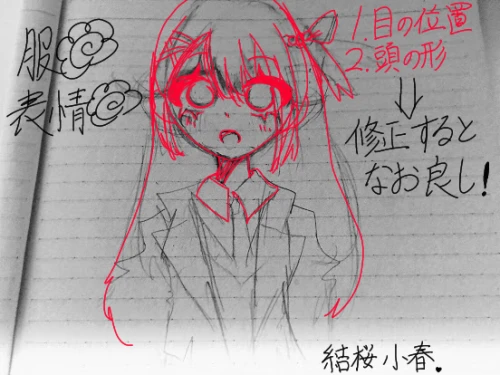 服
表情
1.目の位置
2.頭の形
⇓
修正すると
なお良し!
結桜小春.